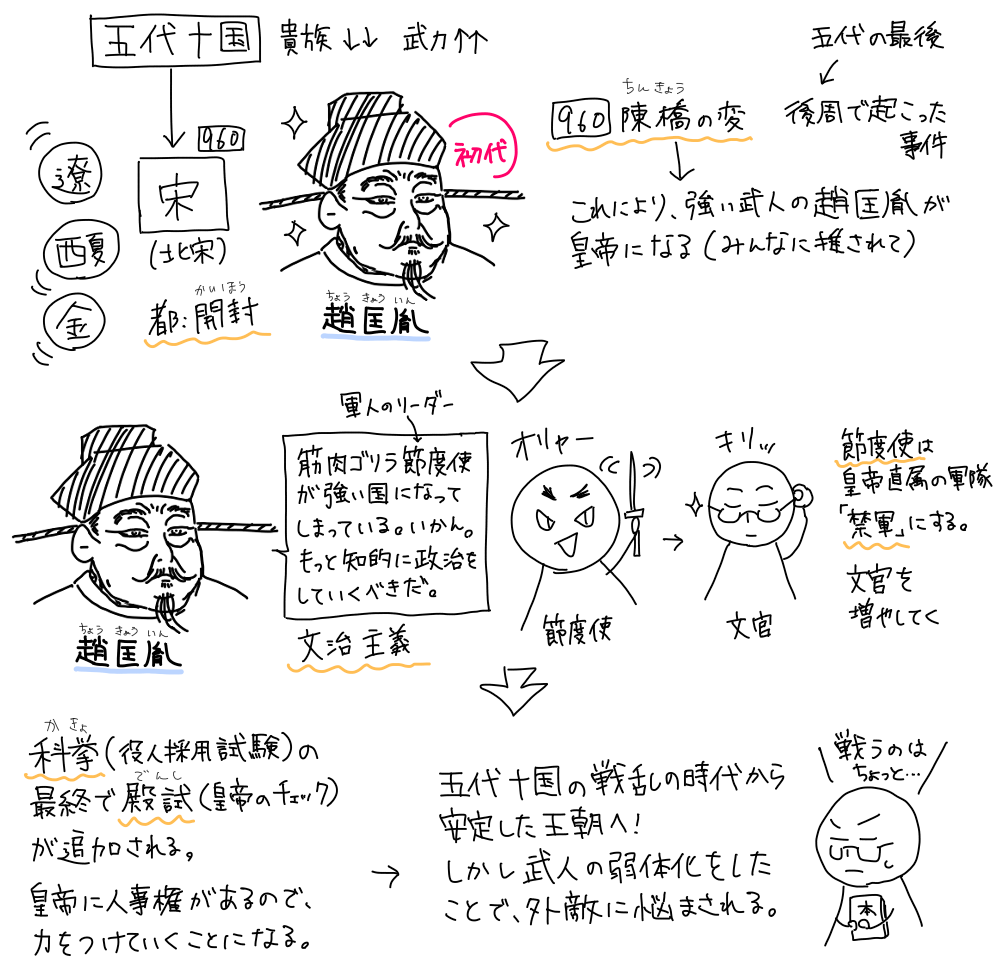 五代十国
貴族↓↓ 武力↑↑
960
宋
(北宋)
かいほう
都:開封
遼
西夏
金
初代
ちょう きょう いん
趙匡胤
五代の最後
後周で起こった
事件
ちんきょう
960 陳橋の変
これにより、強い武人の趙匡胤が
皇帝になる(みんなに推されて)
ちょう きょう いん
趙匡胤
軍人のリーダー
筋肉ゴリラ節度使
が強い国になって
しまっている。いかん。
もっと知的に政治を
していくべきだ。
文治主義
オリャー
節度使
キリッ
文官
節度使は
皇帝直属の軍隊
「禁軍」にする。
文官を
増やしてく
かきょ
科挙(役人採用試験)の
でんし
最終で殿試(皇帝のチェック)
が追加される。
皇帝に人事権があるので、
力をつけていくことになる。
→
五代十国の戦乱の時代から
安定した王朝へ!
しかし武人の弱体化をした
ことで、外敵に悩まされる。
戦うのは
ちょっと…
本